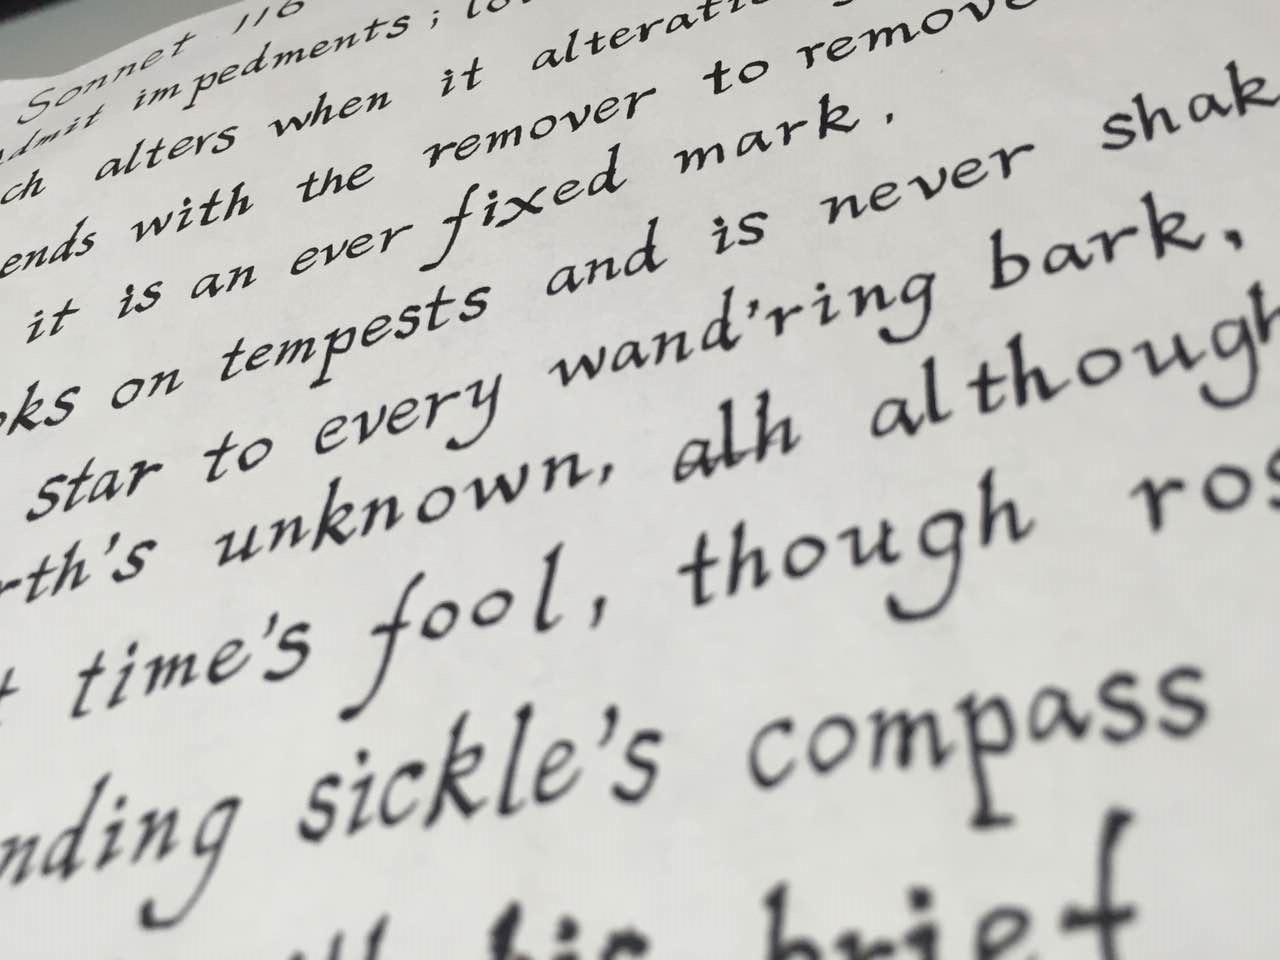 Sonnet 116
admit impedments; lo
ch alters when it alterati
ends with the remover to remove
it is an ever fixed mark.
oks on tempests and is never shak
star to every wand'ring bark,
rth's unknown, alh although
t time's fool, though ros
nding sickle's compass
his brief